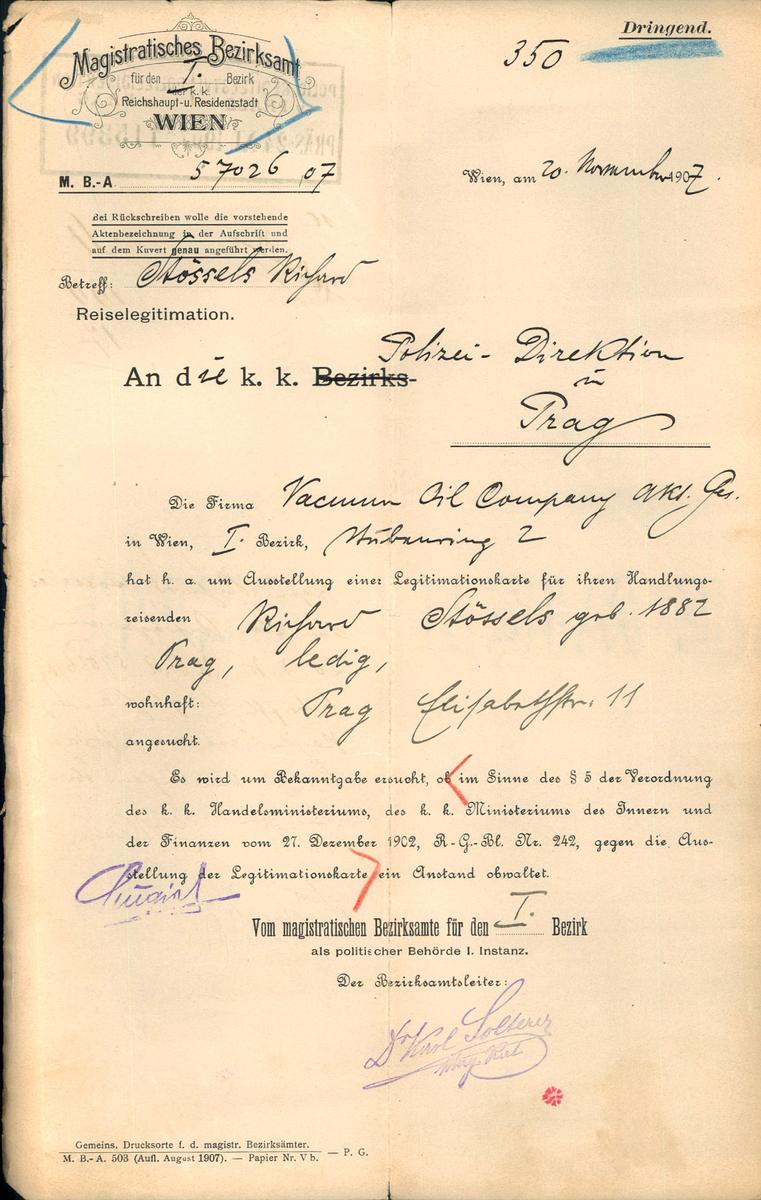 Dringend.
350
Magistratisches Bezirksamt
für den I. Bezirk
der k. k.
Reichshaupt- u. Residenzstadt
WIEN
M. B.-A. 57026/07
Wien, am 20. November 1907.
Bei Rückschreiben wolle die vorstehende
Aktenbezeichnung in der Aufschrift und
auf dem Kuvert genau angeführt werden.
Betreff: Stössels Richard
Reiselegitimation.
Polizei-Direktion
An die k. k. Bezirks-
in
Prag
Die Firma Vacuum Oil Company Akt. Ges.
in Wien, I. Bezirk, Stubenring 2
hat h. a. um Ausstellung einer Legitimationskarte für ihren Handlungs-
reisenden Richard Stössels geb. 1882
Prag, ledig,
wohnhaft: Prag Elisabethstr. 11
angesucht.
Es wird um Bekanntgabe ersucht, ob im Sinne des § 5 der Verordnung
des k. k. Handelsministeriums, des k. k. Ministeriums des Innern und
der Finanzen vom 27. Dezember 1902, R.-G.-Bl. Nr. 242, gegen die Aus-
stellung der Legitimationskarte ein Anstand obwaltet.
Vom magistratischen Bezirksamte für den I. Bezirk
als politischer Behörde I. Instanz.
Der Bezirksamtsleiter:
Dr Karl Solterer
Mag. Rat
Gemeins. Drucksorte f. d. magistr. Bezirksämter.
M. B.-A. 503 (Aufl. August 1907). — Papier Nr. V b. — P. G.